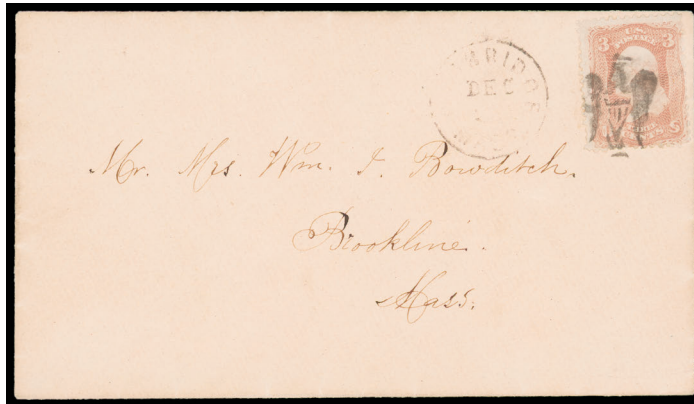 DEC
3 3
Mr. Mrs. Wm. I. Bowditch.
Brookline.
Mass.